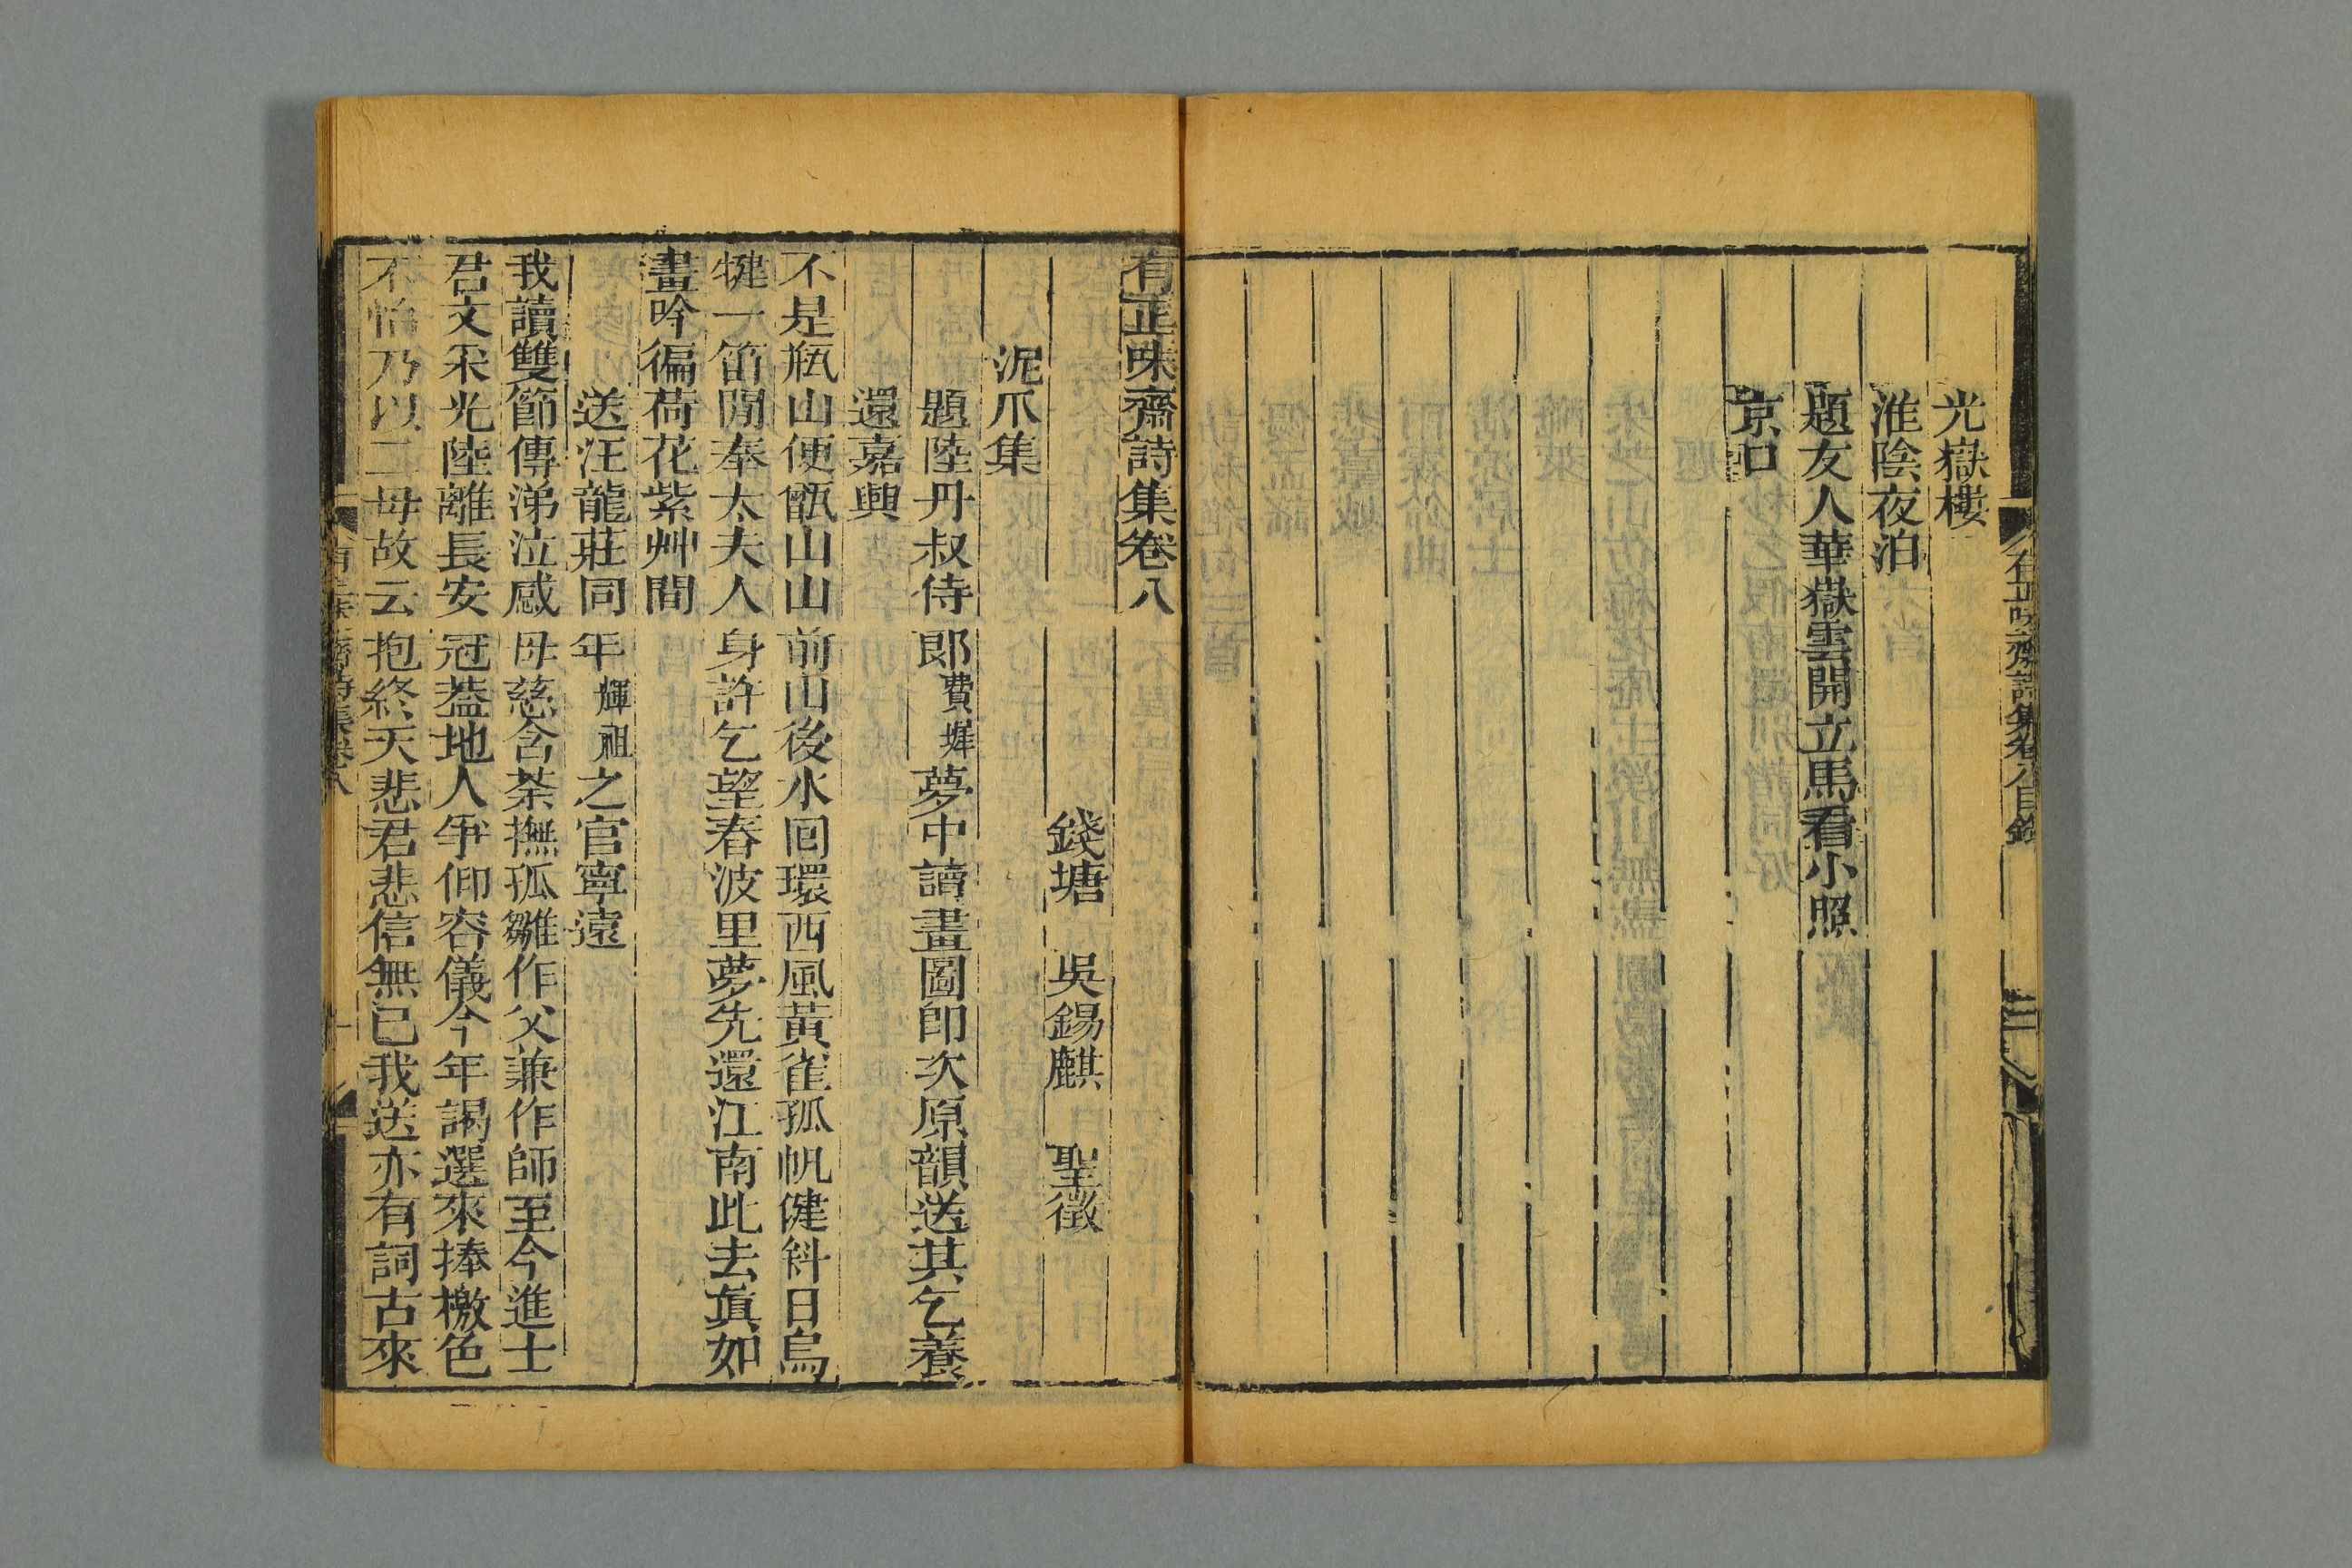 光嶽樓
淮陰夜泊
題友人華嶽雲開立馬看小照
京口
有正味齋詩集卷八目錄
有正味齋詩集卷八
錢塘 吳錫麒 聖徵
泥爪集
題陸丹叔侍郎費墀夢中讀畫圖卽次原韻送其乞養
還嘉興
不是瓶山便甑山山前山後水回環西風黃雀孤帆健斜日烏
犍一笛閒奉太夫人身許乞望春波里夢先還江南此去眞如
畫吟徧荷花紫艸間
送汪龍莊同年輝祖之官寧遠
我讀雙節傳涕泣感母慈含荼撫孤雛作父兼作師至今進士
君文采光陸離長安冠葢地人爭仰容儀今年謁選來捧檄色
不怡乃以二母故云抱終天悲君悲信無已我送亦有詞古來
有正味齋詩集卷八 一